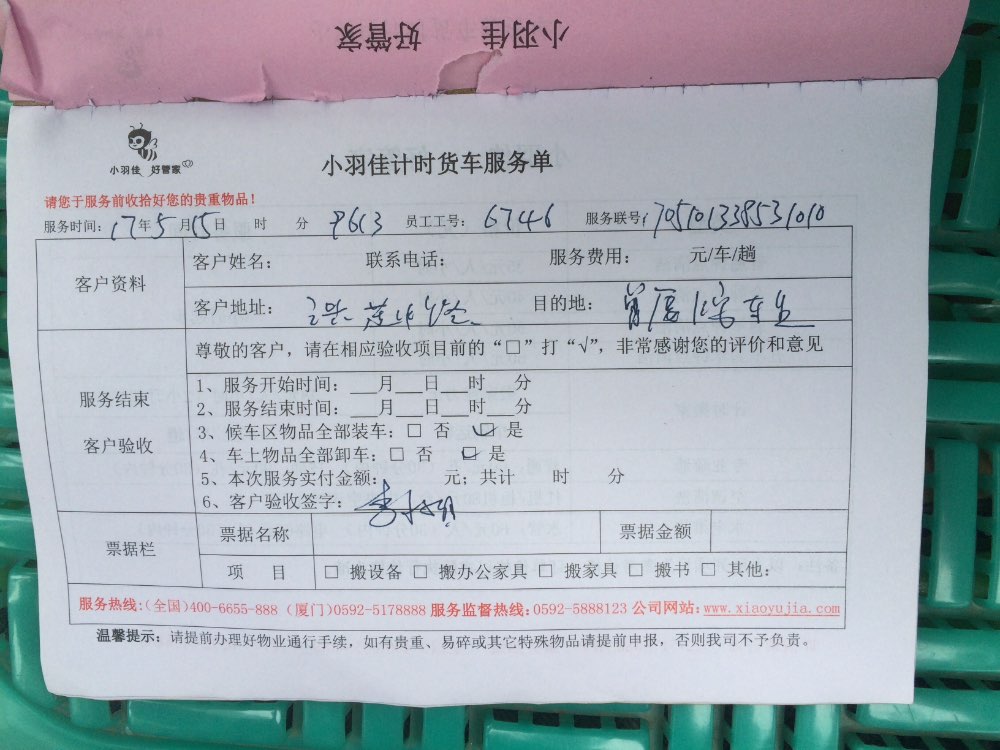 小羽佳 好管家
小羽佳 好管家
小羽佳计时货车服务单
请您于服务前收拾好您的贵重物品！
服务时间：17年5月15日 时 分 8613 员工工号：6746 服务联号：1705101338531010
客户资料
客户姓名： 联系电话： 服务费用： 元/车/趟
客户地址： 目的地：
服务结束
客户验收
尊敬的客户，请在相应验收项目前的“□”打“√”，非常感谢您的评价和意见
1、服务开始时间：___月___日___时___分
2、服务结束时间：___月___日___时___分
3、候车区物品全部装车：□ 否 ☑ 是
4、车上物品全部卸车：□ 否 ☑ 是
5、本次服务实付金额： 元；共计 时 分
6、客户验收签字：
票据栏
票据名称 票据金额
项 目 □ 搬设备 □ 搬办公家具 □ 搬家具 □ 搬书 □ 其他：
服务热线：(全国)400-6655-888 (厦门)0592-5178888 服务监督热线：0592-5888123 公司网站：www.xiaoyujia.com
温馨提示：请提前办理好物业通行手续，如有贵重、易碎或其它特殊物品请提前申报，否则我司不予负责。